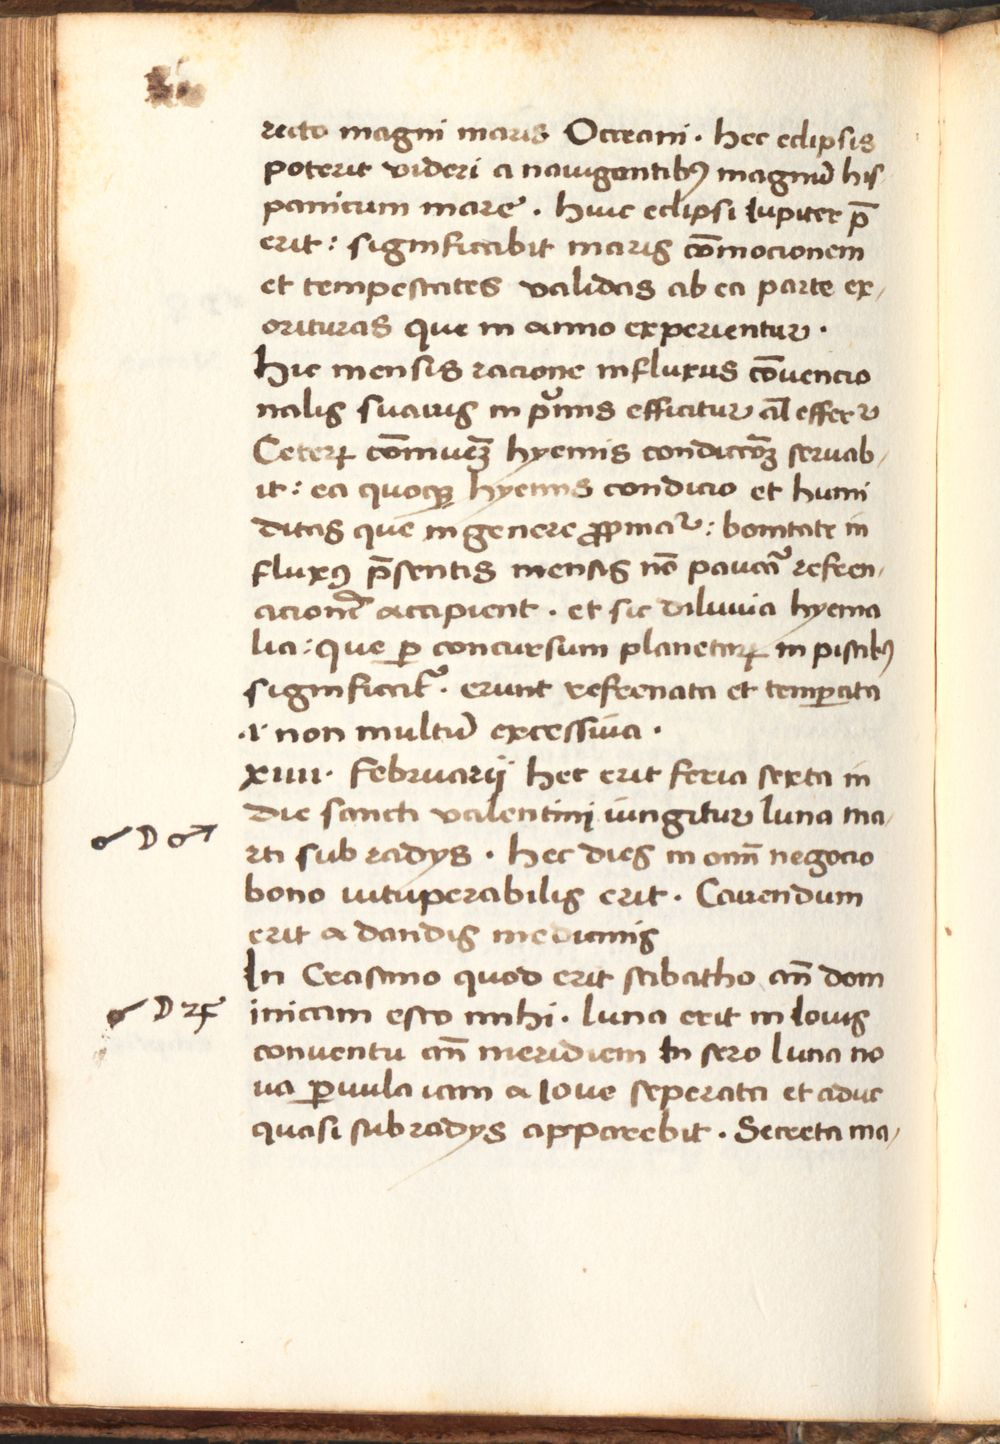 recto magni maris Occeani . hec eclipsis
poterit videri a navigantibꝰ magnū his
panicum mare . huic eclipsi Iupiter p̄
erit : significabit maris cōmocionem
et tempestates validas ab ea parte ex-
orituras que in anno experientur .
Hic mensis racione influxus cōvencio
nalis suavis in primis efficitur
Ceterꝝ hyemis servab-
it : ea quoqꝫ hyemis condicio et humi
ditas que in genere : bonitate in
fluxꝰ p̄sentis mensis nō refren-
acionē accipient . et sic diluvia hyema
lia : que ꝑ concursum planetarꝝ in piscibꝰ
significāt᷑ . erunt refrenata et temꝑata
.i. non multū excessiva .
xiiii . februarij hec erit feria sexta in
die sancti valentini iungitur luna ma-
☌ ☽ ♂
rti sub radys . hec dies in omī negocio
bono vituperabilis erit . Cavendum
erit a dandis medicinis
In Crastino quod erit sabatho an̄ dom
☌ ☽ ♃
inicam esto mihi . luna erit in Iovis
conventu an̄ meridiem In sero luna no
va ꝑvula iam a Iove seperata et aduc
quasi sub radys apparebit . Secreta ma-